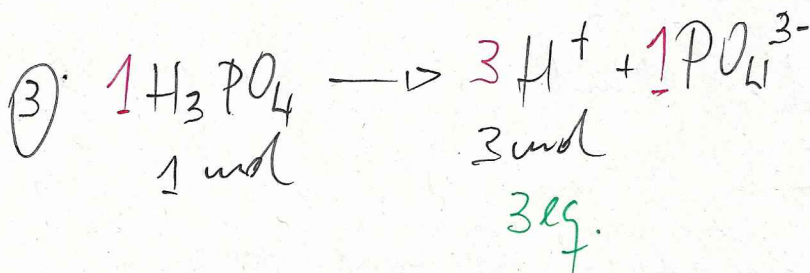 ③. 1 H₃PO₄ → 3 H⁺ + 1 PO₄³⁻
1 mol 3 mol
3 eq.